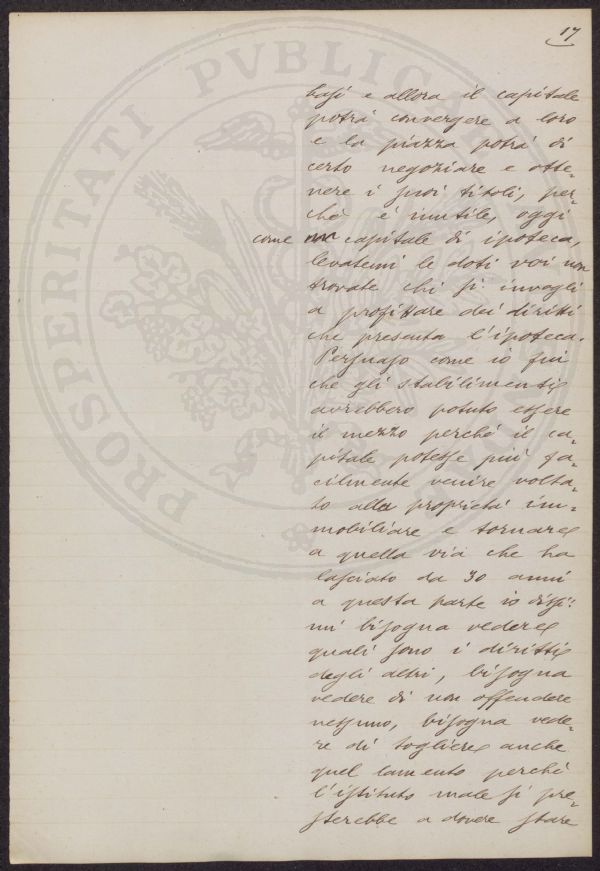 17
basi e allora il capitale
potrà convergere a loro
e la piazza potrà di
certo negoziare e otte=
nere i suoi titoli, per=
chè è inutile, oggi
come capitale di ipoteca,
levatemi le doti voi non
trovate chi si invogli
a profittare dei diritti
che presenta l'ipoteca.
Persuaso come io fui
che gli stabilimenti
avrebbero potuto essere
il mezzo perchè il ca=
pitale potesse più fa=
cilmente venire volta=
to alla proprietà im=
mobiliare e tornare
a quella via che ha
lasciato da 30 anni
a questa parte io dissi:
mi bisogna vedere
quali sono i diritti
degli altri, bisogna
vedere di non offendere
nessuno, bisogna vede=
re di togliere anche
quel lamento perchè
l'istituto male si pre=
sterebbe a dovere stare
PROSPERITATI PVBLICAE